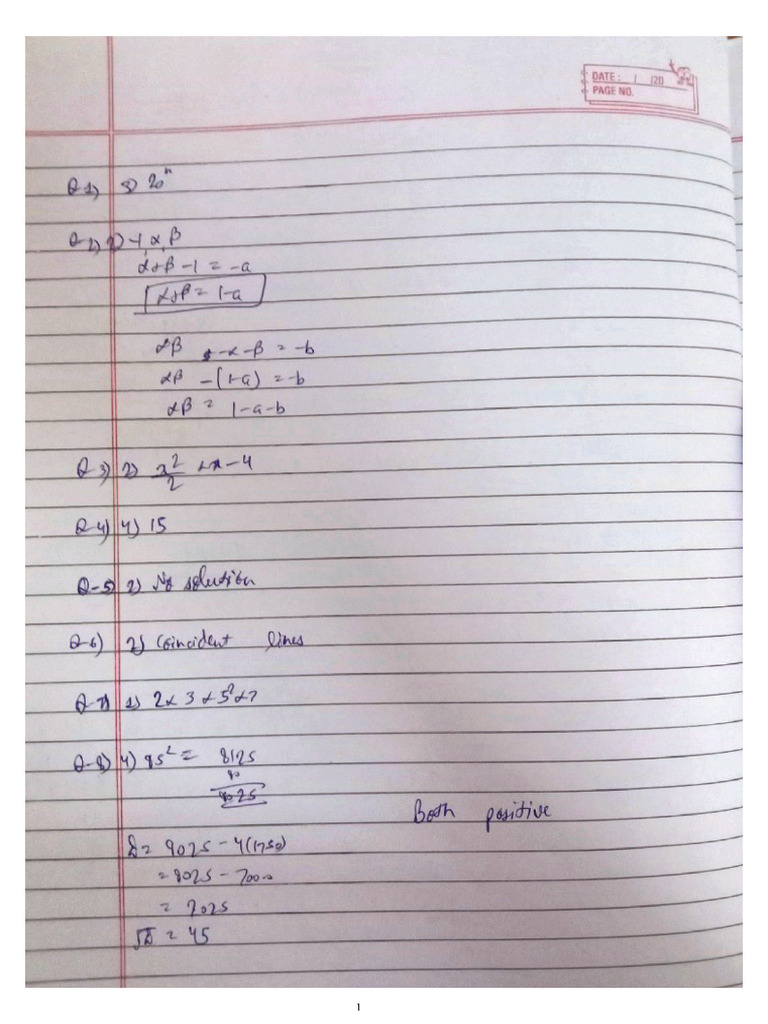 DATE: / /20
PAGE NO.
Q-1) 3) 20ⁿ
Q-2) 2) -1 α, β
α+β-1 = -a
α+β = 1-a
αβ -α-β = -b
αβ -(1-a) = -b
αβ = 1-a-b
Q-3) 2) x²/2 +x-4
Q-4) 4) 15
Q-5) 2) No solution
Q-6) 2) Coincident lines
Q-7) 1) 2×3×5²×7
Q-8) 4) 95² = 8125
90
9025
Both positive
D = 9025 - 4(1750)
= 9025 - 7000
= 2025
√D = 45
1